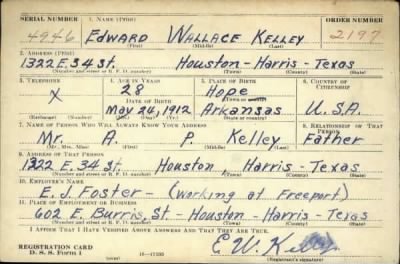 SERIAL NUMBER 1. NAME (Print) ORDER NUMBER
4946 EDWARD WALLACE KELLEY 2197
(First) (Middle) (Last)
2. ADDRESS (Print)
1322 E. 34 St. Houston - Harris - Texas
(Number and street or R. F. D. number) (Town) (County) (State)
3. TELEPHONE 4. AGE IN YEARS 5. PLACE OF BIRTH 6. COUNTRY OF CITIZENSHIP
X 28 Hope
DATE OF BIRTH (Town or county)
May 24, 1912 Arkansas U.S.A.
(Exchange) (Number) (Mo.) (Day) (Yr.) (State or country)
7. NAME OF PERSON WHO WILL ALWAYS KNOW YOUR ADDRESS 8. RELATIONSHIP OF THAT PERSON
Mr. A. P. Kelley Father
(Mr., Mrs., Miss) (First) (Middle) (Last)
9. ADDRESS OF THAT PERSON
1322 E. 34 St. Houston - Harris - Texas
(Number and street or R. F. D. number) (Town) (County) (State)
10. EMPLOYER'S NAME
E. J. Foster - (Working at Freeport)
11. PLACE OF EMPLOYMENT OR BUSINESS
602 E. Burris, St. - Houston - Harris - Texas
(Number and street or R. F. D. number) (Town) (County) (State)
I AFFIRM THAT I HAVE VERIFIED ABOVE ANSWERS AND THAT THEY ARE TRUE.
REGISTRATION CARD
D. S. S. Form 1 E W Kelley
(Registrant's signature)